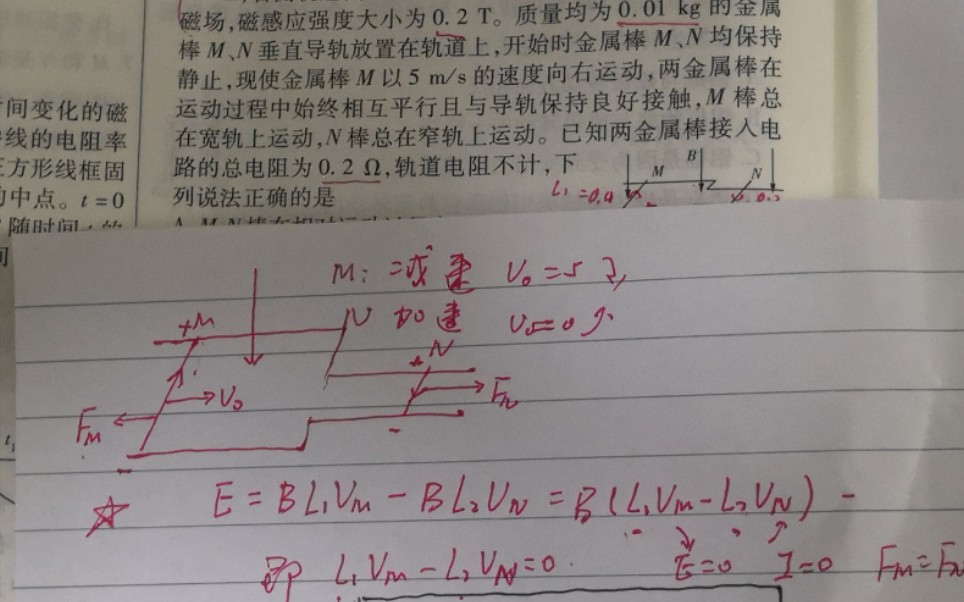 磁场,磁感应强度大小为0.2 T。质量均为0.01 kg的金属
棒M、N垂直导轨放置在轨道上,开始时金属棒M、N均保持
静止,现使金属棒M以5 m/s的速度向右运动,两金属棒在
运动过程中始终相互平行且与导轨保持良好接触,M棒总
在宽轨上运动,N棒总在窄轨上运动。已知两金属棒接入电
路的总电阻为0.2 Ω,轨道电阻不计,下
列说法正确的是
B
M
N
L₁=0.4
间变化的磁
线的电阻率
三方形线框固
的中点。t=0
随时间
M: 减速 V₀=5
N 加速 V₀=0
+M
+N
V₀
Fₘ
F_N
E=BL₁Vₘ-BL₂V_N=B(L₁Vₘ-L₂V_N)
即 L₁Vₘ-L₂V_N=0. E=0 I=0 Fₘ=F_N